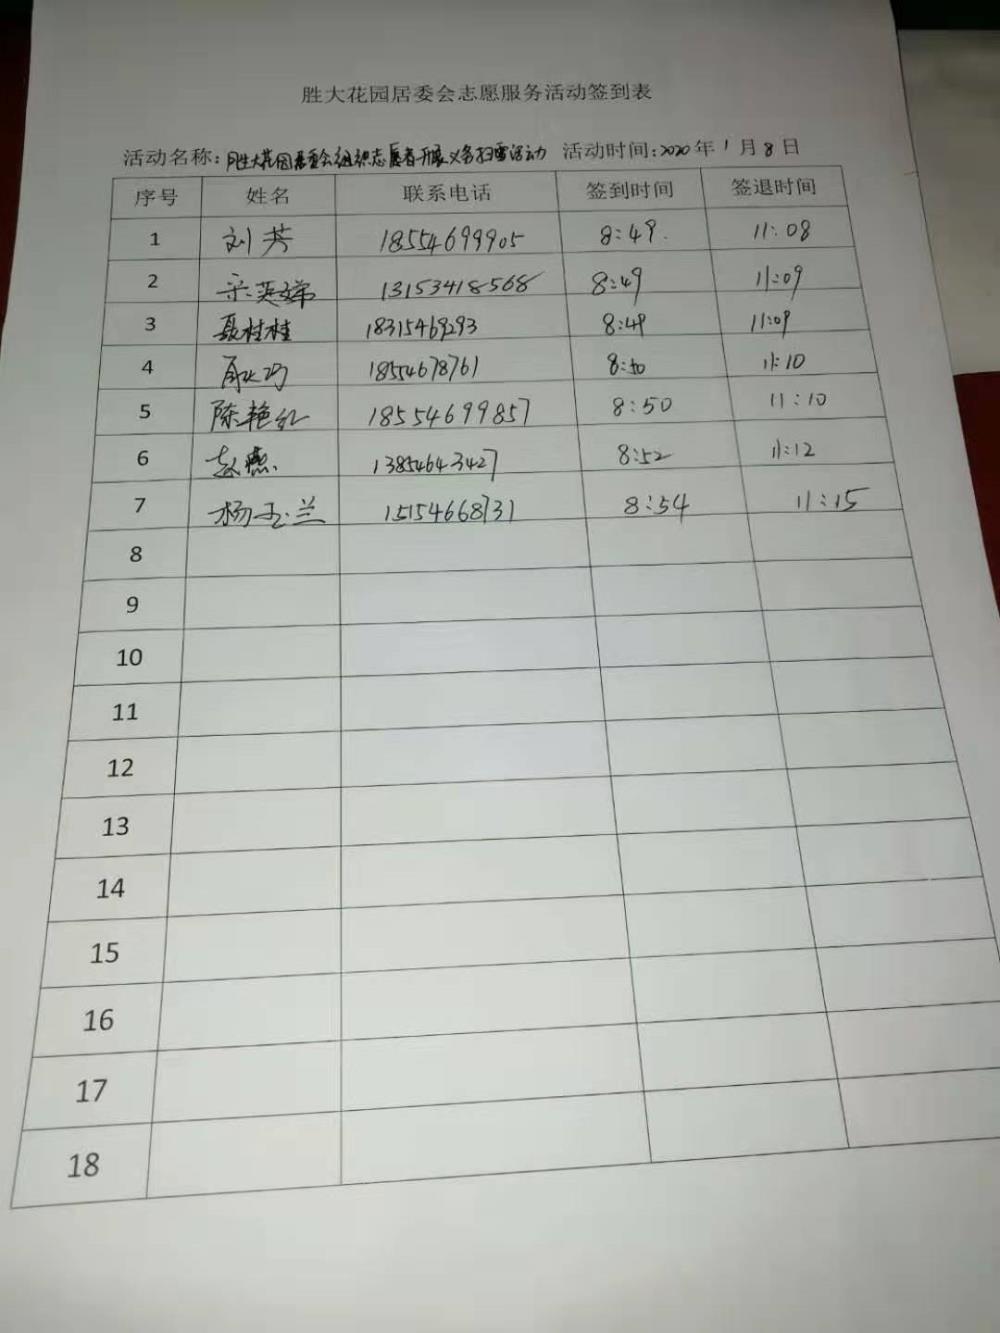 胜大花园居委会志愿服务活动签到表
活动名称：胜大花园居委会组织志愿者开展义务扫雪活动 活动时间：2020年1月8日
序号 姓名 联系电话 签到时间 签退时间
1 刘芳 18554699905 8:49 11:08
2 英娣 13153418568 8:49 11:09
3 聂桂桂 18315469293 8:49 11:09
4 18554678761 8:50 11:10
5 陈艳红 18554699857 8:50 11:10
6 赵燕 13854643427 8:52 11:12
7 杨玉兰 15154668731 8:54 11:15
8
9
10
11
12
13
14
15
16
17
18